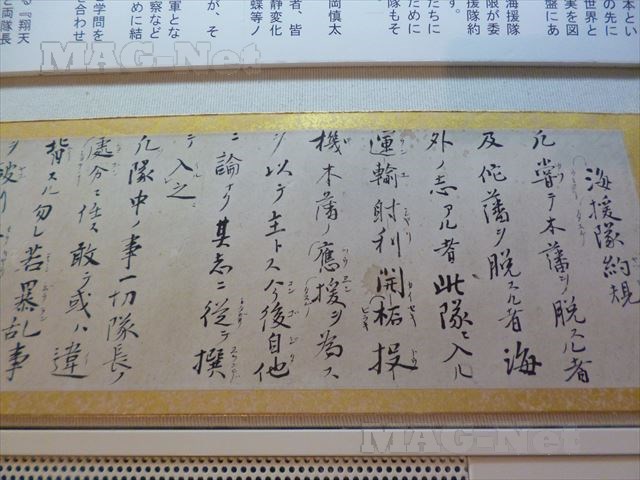 本とい
の先に
世界と
実を図
盤にあ
海援隊
限が委
援隊約
す。
たちに
ために
隊もそ
岡慎太
者、皆
静変化
蝶等ノ
が、そ
軍とな
察など
めに結
学問を
合わせ
る『翔天
と両隊長
海援隊約規
凡嘗テ本藩ヲ脱スル者
及佗藩ヲ脱スル者海
外ノ志アル者此隊ニ入ル
運輸射利開柘投
機本藩ノ應援ヲ為ス
ヲ以テ主トス今後自他
ニ論ナク其志ニ従テ撰
テ入之
凡隊中ノ事一切隊長ノ
處分ニ任ス敢テ或ハ違
背スル勿レ若暴乱事
ヲ破リ
MAG-Net
MAG-Net